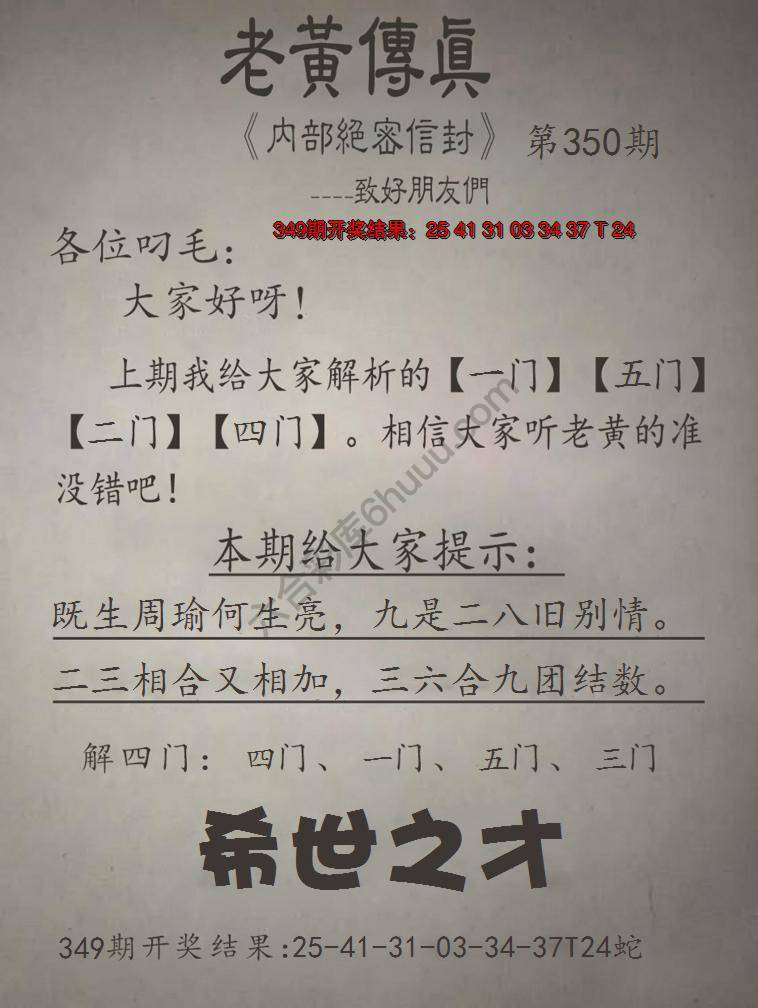 老黃傳眞
《内部絕密信封》 第350期
----致好朋友們
349期开奖结果：25 41 31 03 34 37 T 24
各位叼毛：
大家好呀！
上期我给大家解析的【一门】【五门】
【二门】【四门】。相信大家听老黄的准
没错吧！
六合彩库6huuu.com
本期给大家提示：
既生周瑜何生亮，九是二八旧别情。
二三相合又相加，三六合九团结数。
解四门： 四门、 一门、 五门、 三门
希世之才
349期开奖结果:25-41-31-03-34-37T24蛇